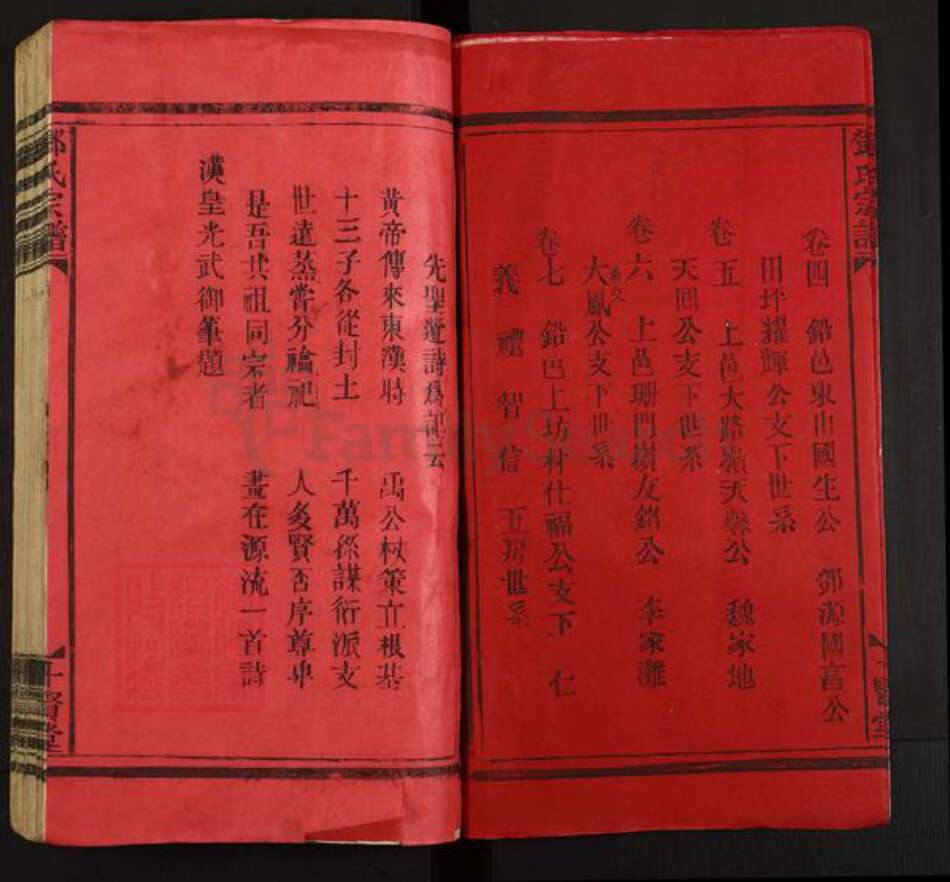 卷四 鉛邑東山國生公 鄧源國富公
田坪耀輝公支下世系
卷五 上邑大路嶺天榮公 魏家地
天回公支下世系
卷六 上邑珊門嶺友銘公 李家灘
大鳳公支下世系
卷七 鉛邑上坊村仕福公支下 仁
義 禮 智 信 五房世系
鄧氏宗譜
賢堂
先聖遺詩爲記云
黃帝傳來東漢時 禹公杖策立根基
十三子各從封土 千萬孫謀衍派支
世遠蒸嘗分禴祀 人多賢否序尊卑
是吾共祖同宗者 盡在源流一首詩
漢皇光武御筆題
鄧氏宗譜
賢堂
FamilySearch